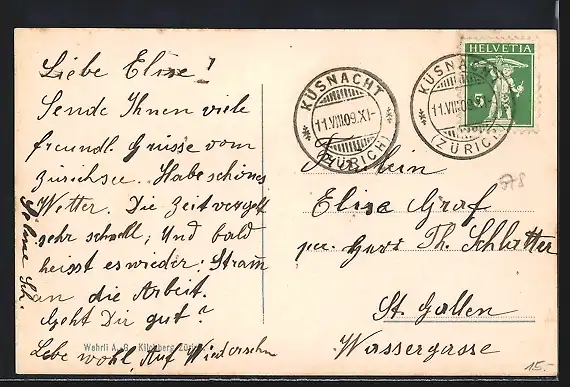 Liebe Elise!
Sende Ihnen viele
freundl. Grüsse vom
Zürichsee. Habe schönes
Wetter. Die Zeit vergeht
sehr schnell, Und bald
heisst es wieder: Stramm
an die Arbeit.
Geht Dir gut?
Lebe wohl, Auf Wiedersehn
Wehrli A.-G. Kilchberg Zürich
KÜSNACHT
11.VIII.09.XI-
(ZÜRICH)
KÜSNACHT
11.VIII.09.
(ZÜRICH)
HELVETIA
5
Elise Graf
Th. Schlatter
St. Gallen
Wassergasse
15.-